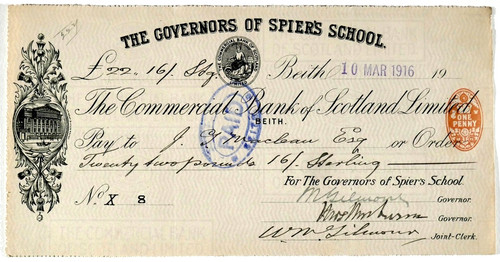 THE GOVERNORS OF SPIER'S SCHOOL.
£22. 16/. Stg. Beith 10 MAR 1916 19
The Commercial Bank of Scotland Limited
BEITH.
PAID
ONE PENNY
Pay to J. Maclean Esq or Order
Twenty two pounds 16/. Sterling
For The Governors of Spier's School.
No. X 8
Governor.
Governor.
Wm Gilmour Joint-Clerk.